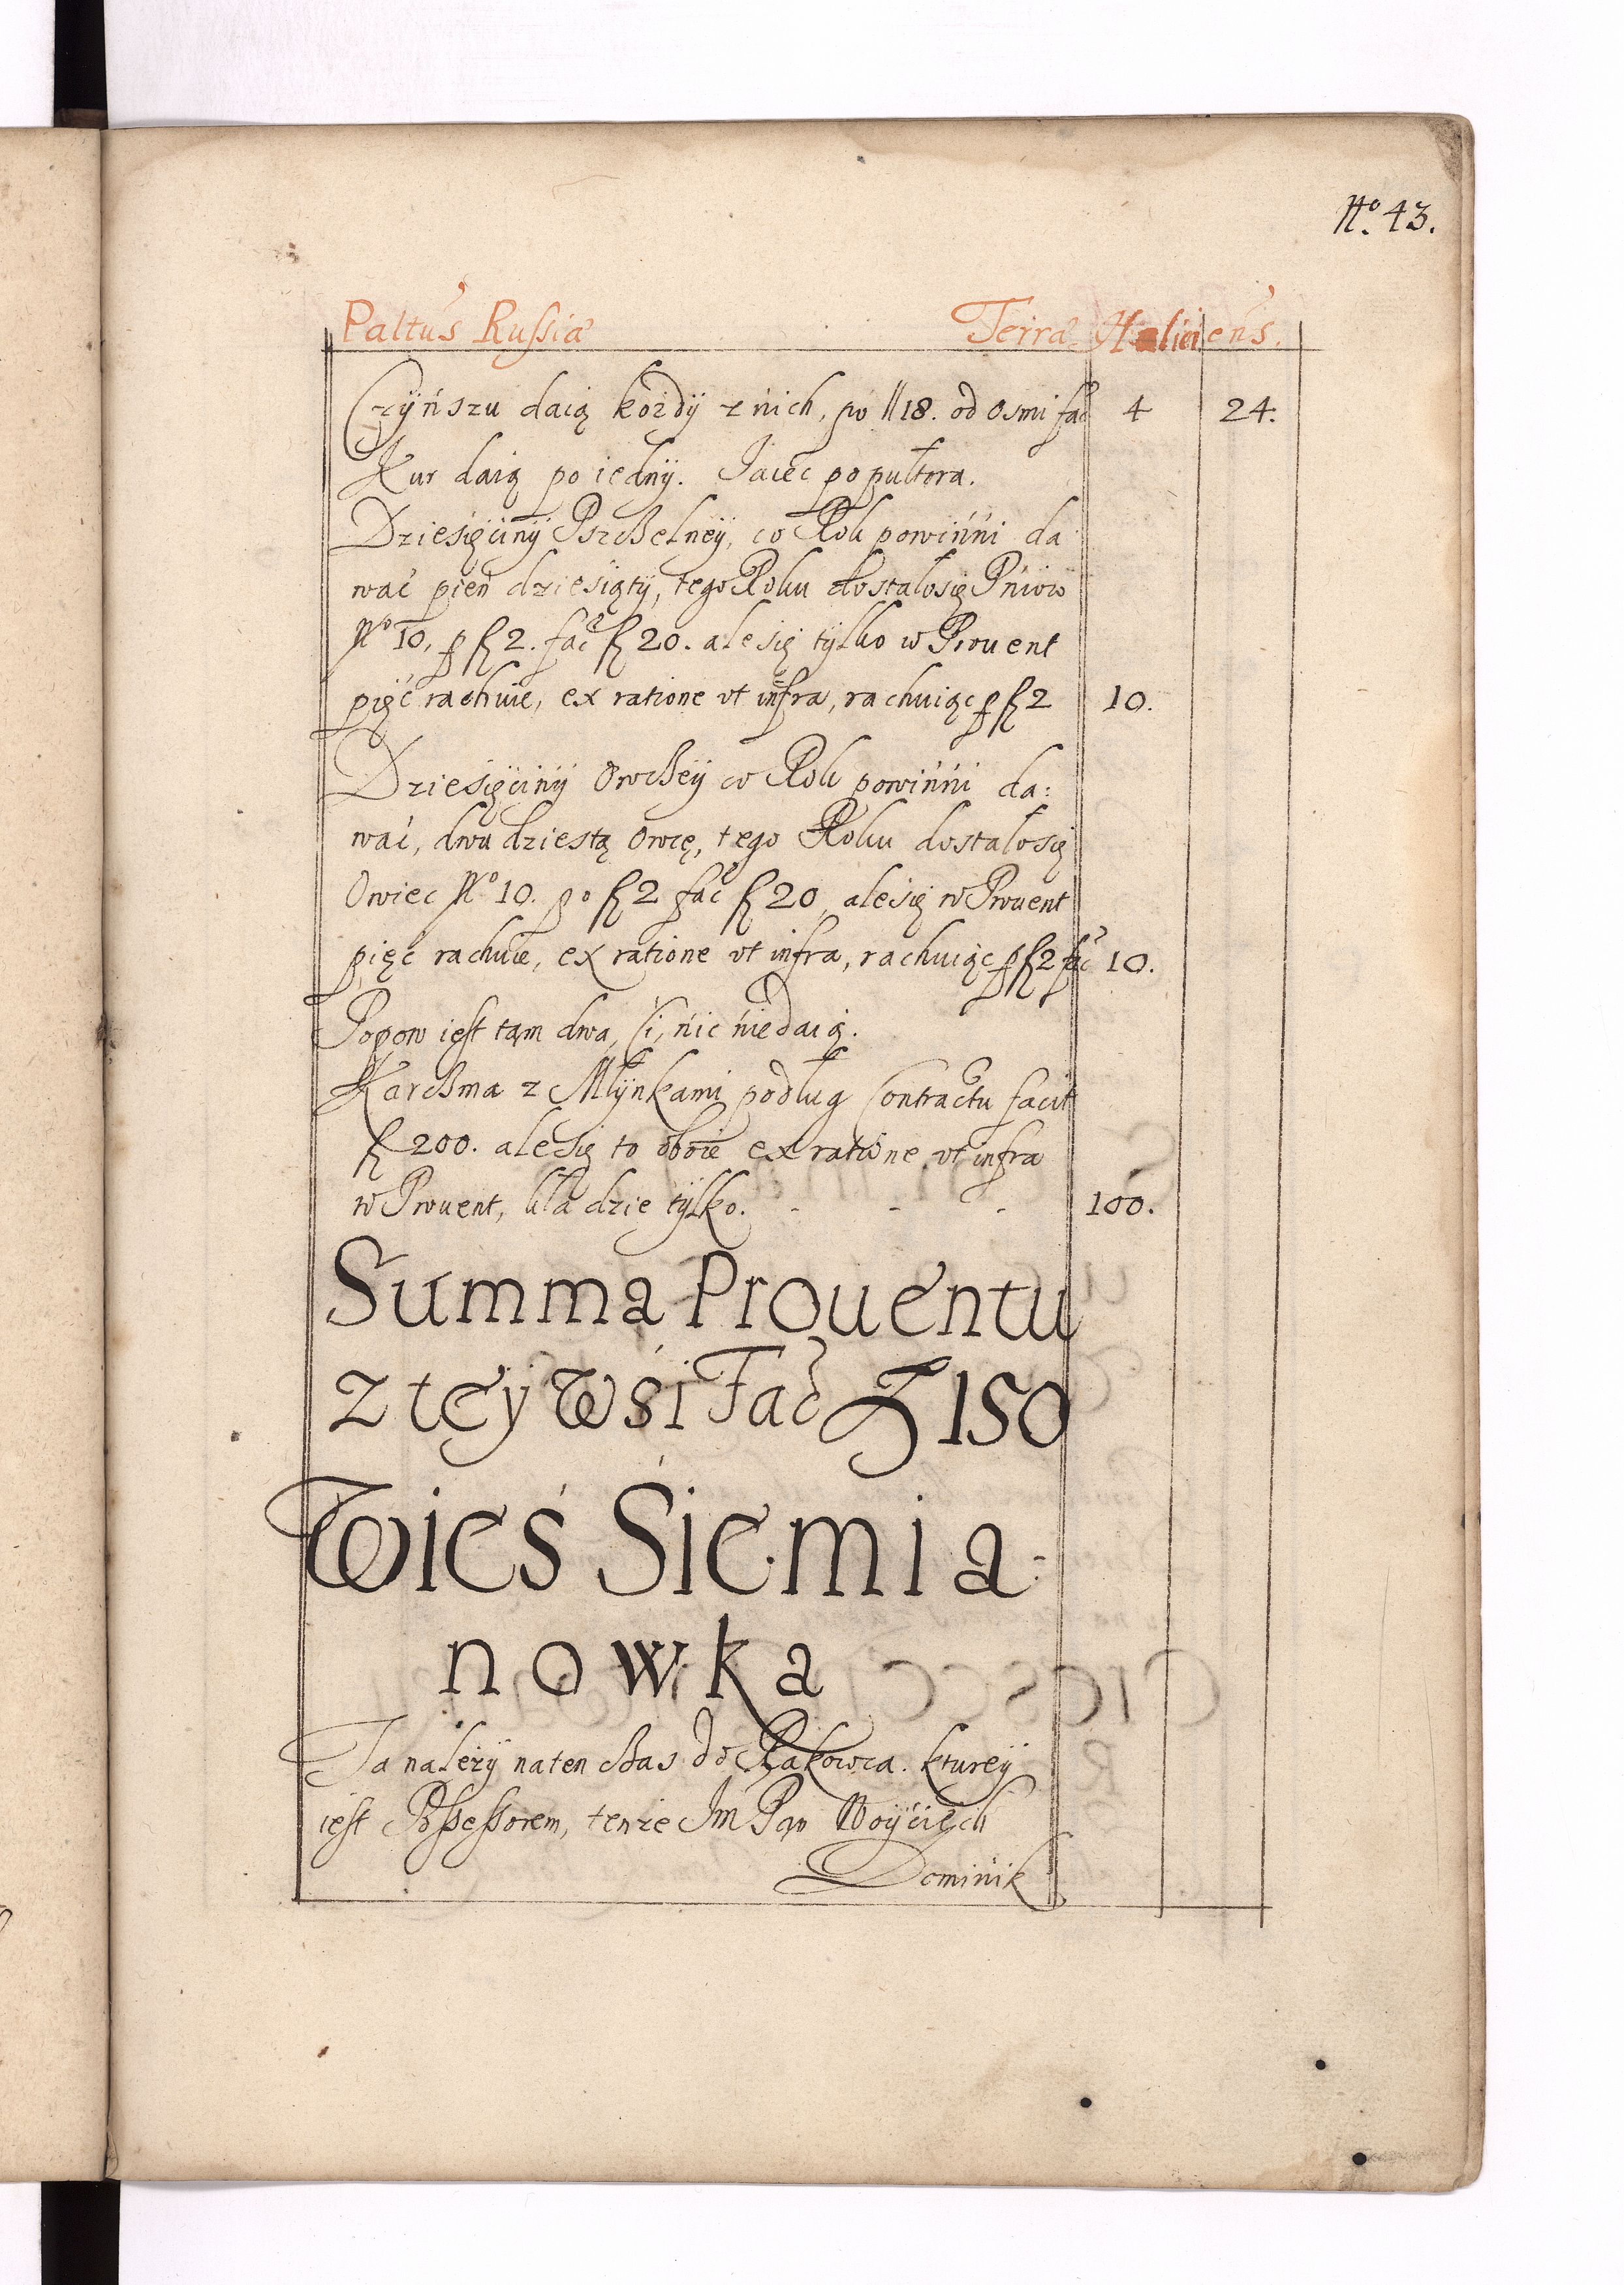 No. 43.
Paltus Russiæ Terræ Haliciens.
Czynszu daią kozdy z nich, po ll 18. od osmi fac 4 24.
Kur daią po iedny. Iaiec po pułtora.
Dziesięciny Pszczelney, co Rok powinni da
wać pień dziesiąty, tego Roku dostało się Pniow
No 10, p fl 2. fac fl 20. ale się tylko w Prouent
pięć rachuie, ex ratione vt infra, rachuiąc p fl 2 10.
Dziesięciny Owczey co Rok powinni da:
wać, dwudziestą owcę, tego Roku dostało się
Owiec No 10. po fl 2 fac fl 20, ale się w Prouent
pięć rachuie, ex ratione vt infra, rachuiąc p fl 2 fac 10.
Popow iest tam dwa, ci, nic niedaią.
Karczma z Młynkami podług Contractu facit
fl 200. ale się to oboie ex ratione vt infra
w Prouent, kładzie tylko. - - - 100.
Summa Prouentu
z tey wśi Fac fl 150
Wieś Siemia:
nowka
Ta nalezy na ten czas do Rakowca. kturey
iest Possessorem, tenze Jm Pan Woyciech
Dominik